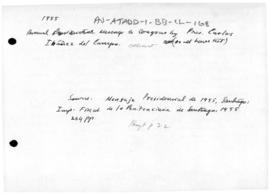 1955
AN-ATADD-1-BB-CL-168
Annual Presidential Message to Congress by Pres. Carlos
Ibáñez del Campo.
Source: Mensaje Presidencial de 1955, Santiago:
Imp. Fiscal de la Penitenciaria de Santiago, 1955
224 pp